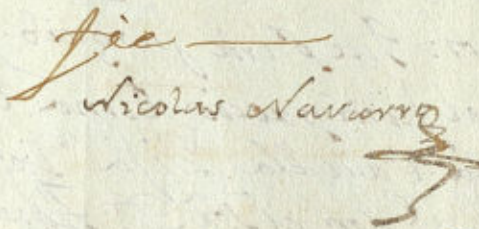 fee
Nicolas Navarro